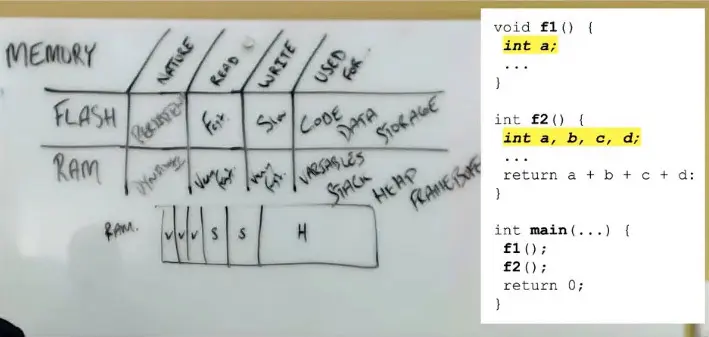 MEMORY
NATURE READ WRITE USED FOR...
FLASH PERSISTENT Fast Slow CODE DATA STORAGE
RAM DYNAMIC Very Fast Very Fast VARIABLES STACK HEAP FRAMEBUFFER
RAM. V V V S S H
void f1() {
int a;
...
}
int f2() {
int a, b, c, d;
...
return a + b + c + d:
}
int main(...) {
f1();
f2();
return 0;
}